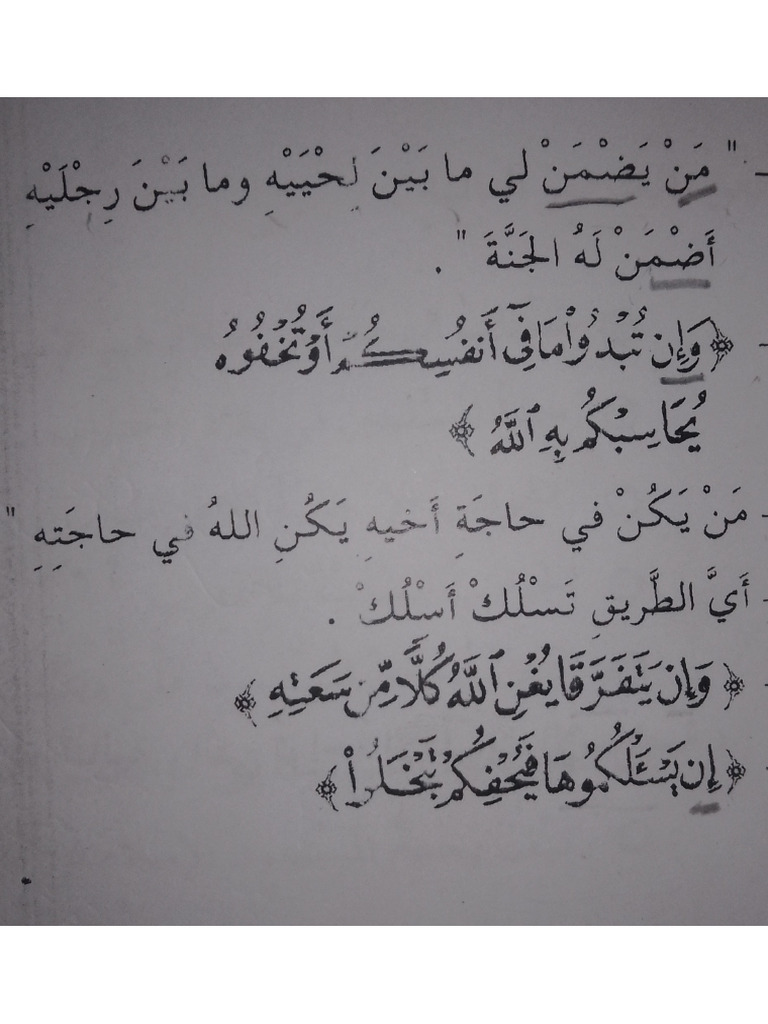 - " مَنْ يَضْمَنْ لي ما بَيْنَ لِحْيَيْهِ وما بَيْنَ رِجْلَيْهِ
أَضْمَنْ لَهُ الجَنَّةَ " .
- ﴿ وَإِن تُبْدُوا۟ مَا فِىٓ أَنفُسِكُمْ أَوْ تُخْفُوهُ
يُحَاسِبْكُم بِهِ ٱللَّهُ ﴾
- مَنْ يَكُنْ في حاجَةِ أَخيهِ يَكُنِ اللهُ في حاجَتِهِ "
- أَيَّ الطَّريقِ تَسْلُكْ أَسْلُكْ .
- ﴿ وَإِن يَتَفَرَّقَا يُغْنِ ٱللَّهُ كُلًّا مِّن سَعَتِهِ ﴾
- ﴿ إِن يَسْـَٔلْكُمُوهَا فَيُحْفِكُمْ تَبْخَلُوا۟ ﴾